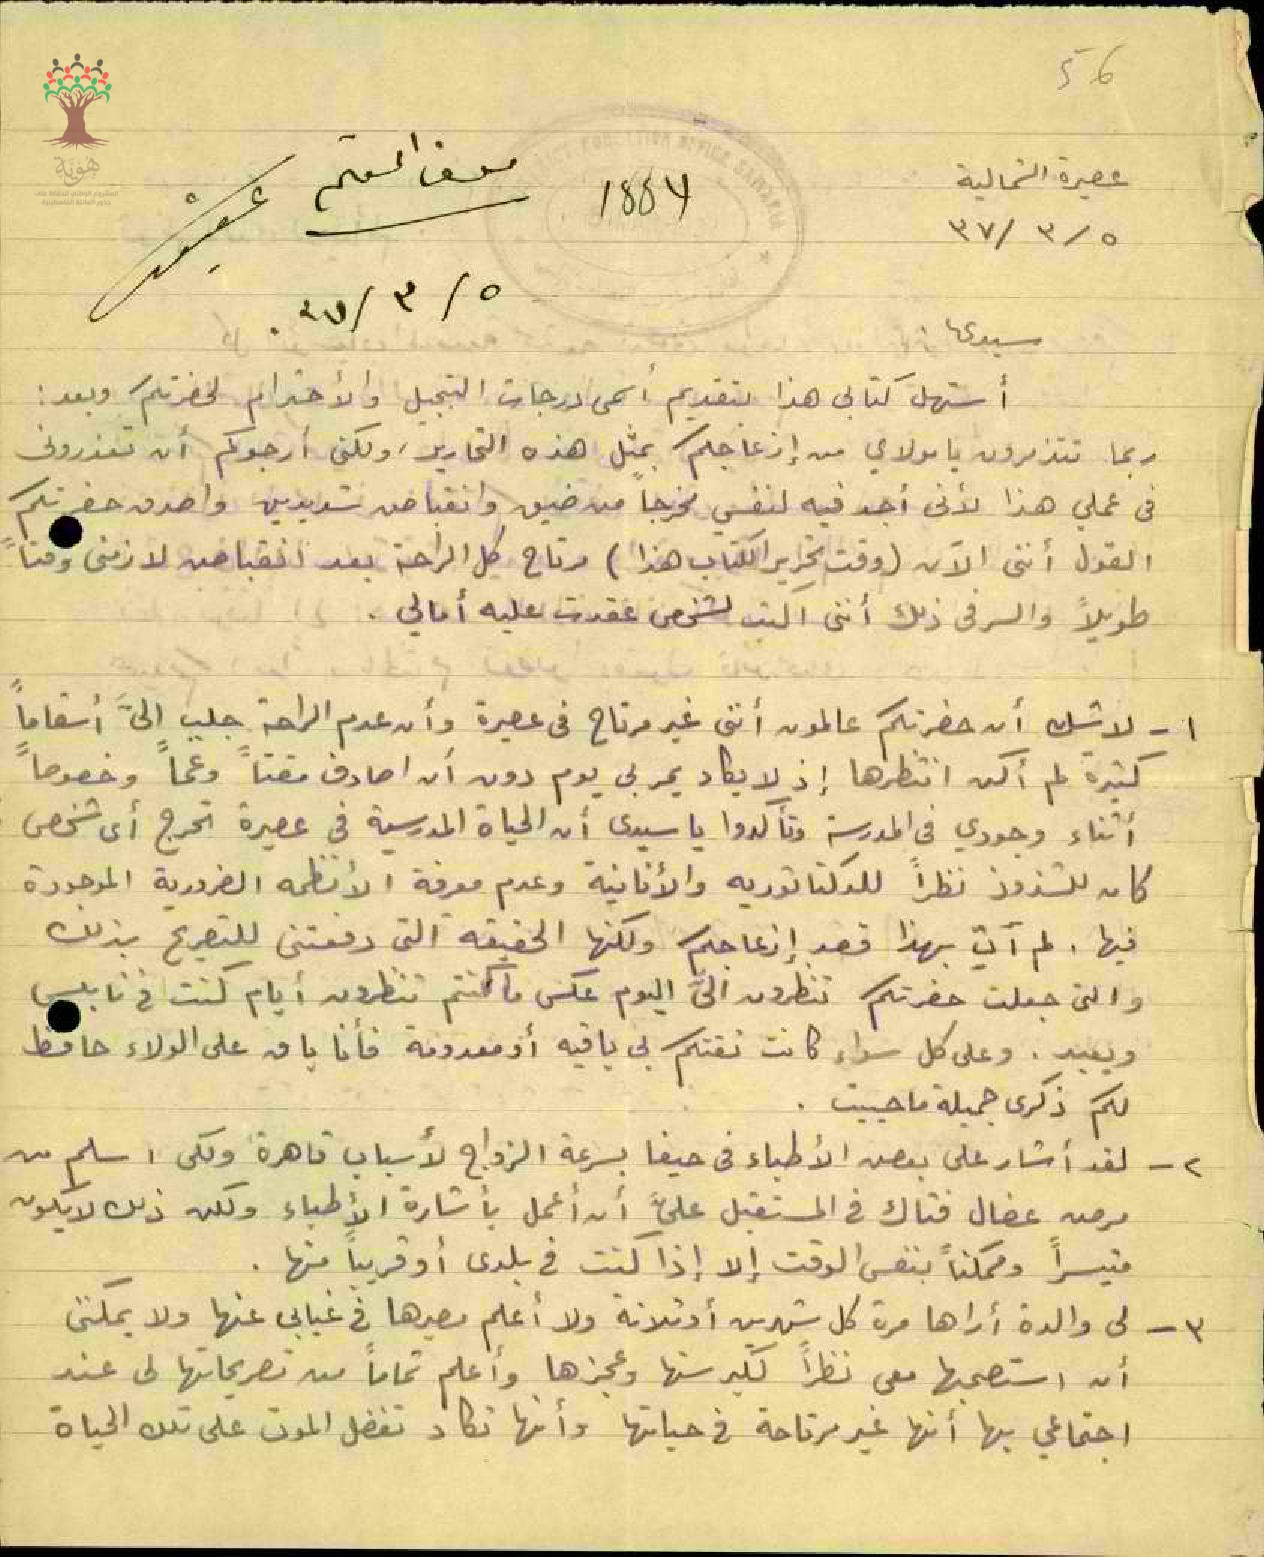 56
عصيرة الشمالية
٥/ ٣ /٣٧
1887
ملف المعلم
٥/ ٣ /٣٧
هوية
DISTRICT EDUCATION OFFICE SAMARIA
سيدي
أستهل كتابي هذا بتقديم أسمى درجات التبجيل والأحترام لحضرتكم وبعد:
ربما تتذمرون يا مولاي من إزعاجكم بمثل هذه التحارير، ولكني أرجوكم أن تعذروني
في عملي هذا لأني أجد فيه لنفسي مخرجاً من ضيق وانقباض شديدين واصدق حضرتكم
القول أنني الآن (وقت تحرير الكتاب هذا) مرتاح كل الراحة بعد انقباض لازمني وقتاً
طويلاً والسر في ذلك أنني اكتب لشخص عقدت عليه أمالي .
١ - لا شك أن حضرتكم عالمون أنني غير مرتاح في عصيرة وأن عدم الراحة جلب اليَّ أسقاماً
كثيرة لم أكن انتظرها إذ لا يكاد يمر بي يوم دون أن اصادف مقتاً وغماً وخصوصاً
أثناء وجودي في المدرسة وتأكدوا يا سيدي أن الحياة المدرسية في عصيرة تحرج أي شخص
كان للشذوذ نظراً للدكتاتوريه والأنانية وعدم معرفة الأنظمه الضرورية الموجودة
فيها . لم آتِ بهذا قصد إزعاجكم ولكنها الحقيقه التي دفعتني للتصريح بذلك
والتي جعلت حضرتكم تنظرون اليَّ اليوم عكس ما كنتم تنظرون أيام كنت في نابلس
وبعيد . وعلى كل سواء كانت ثقتكم بي باقيه أو معدومة فأنا باق على الولاء حافظ
لكم ذكرى جميلة ما حييت .
٢ - لقد أشار علي بعض الأطباء في حيفا بسرعة الزواج لأسباب قاهرة ولكي اسلم من
مرض عضال فتاك في المستقبل عليَّ أن أعمل بأشارة الأطباء ولكن ذلك لا يكون
متيسراً وممكناً بنفس الوقت إلا إذا كنت في بلدي أو قريباً منها .
٣ - لي والدة أراها مرة كل شهرين أو ثلاثة ولا أعلم مصيرها في غيابي عنها ولا يمكنني
أن استصحبها معي نظراً لكبر سنها وعجزها وأعلم تماماً من تصريحاتها لي عند
اجتماعي بها أنها غير مرتاحة في حياتها وأنها تكاد تفضل الموت على تلك الحياة